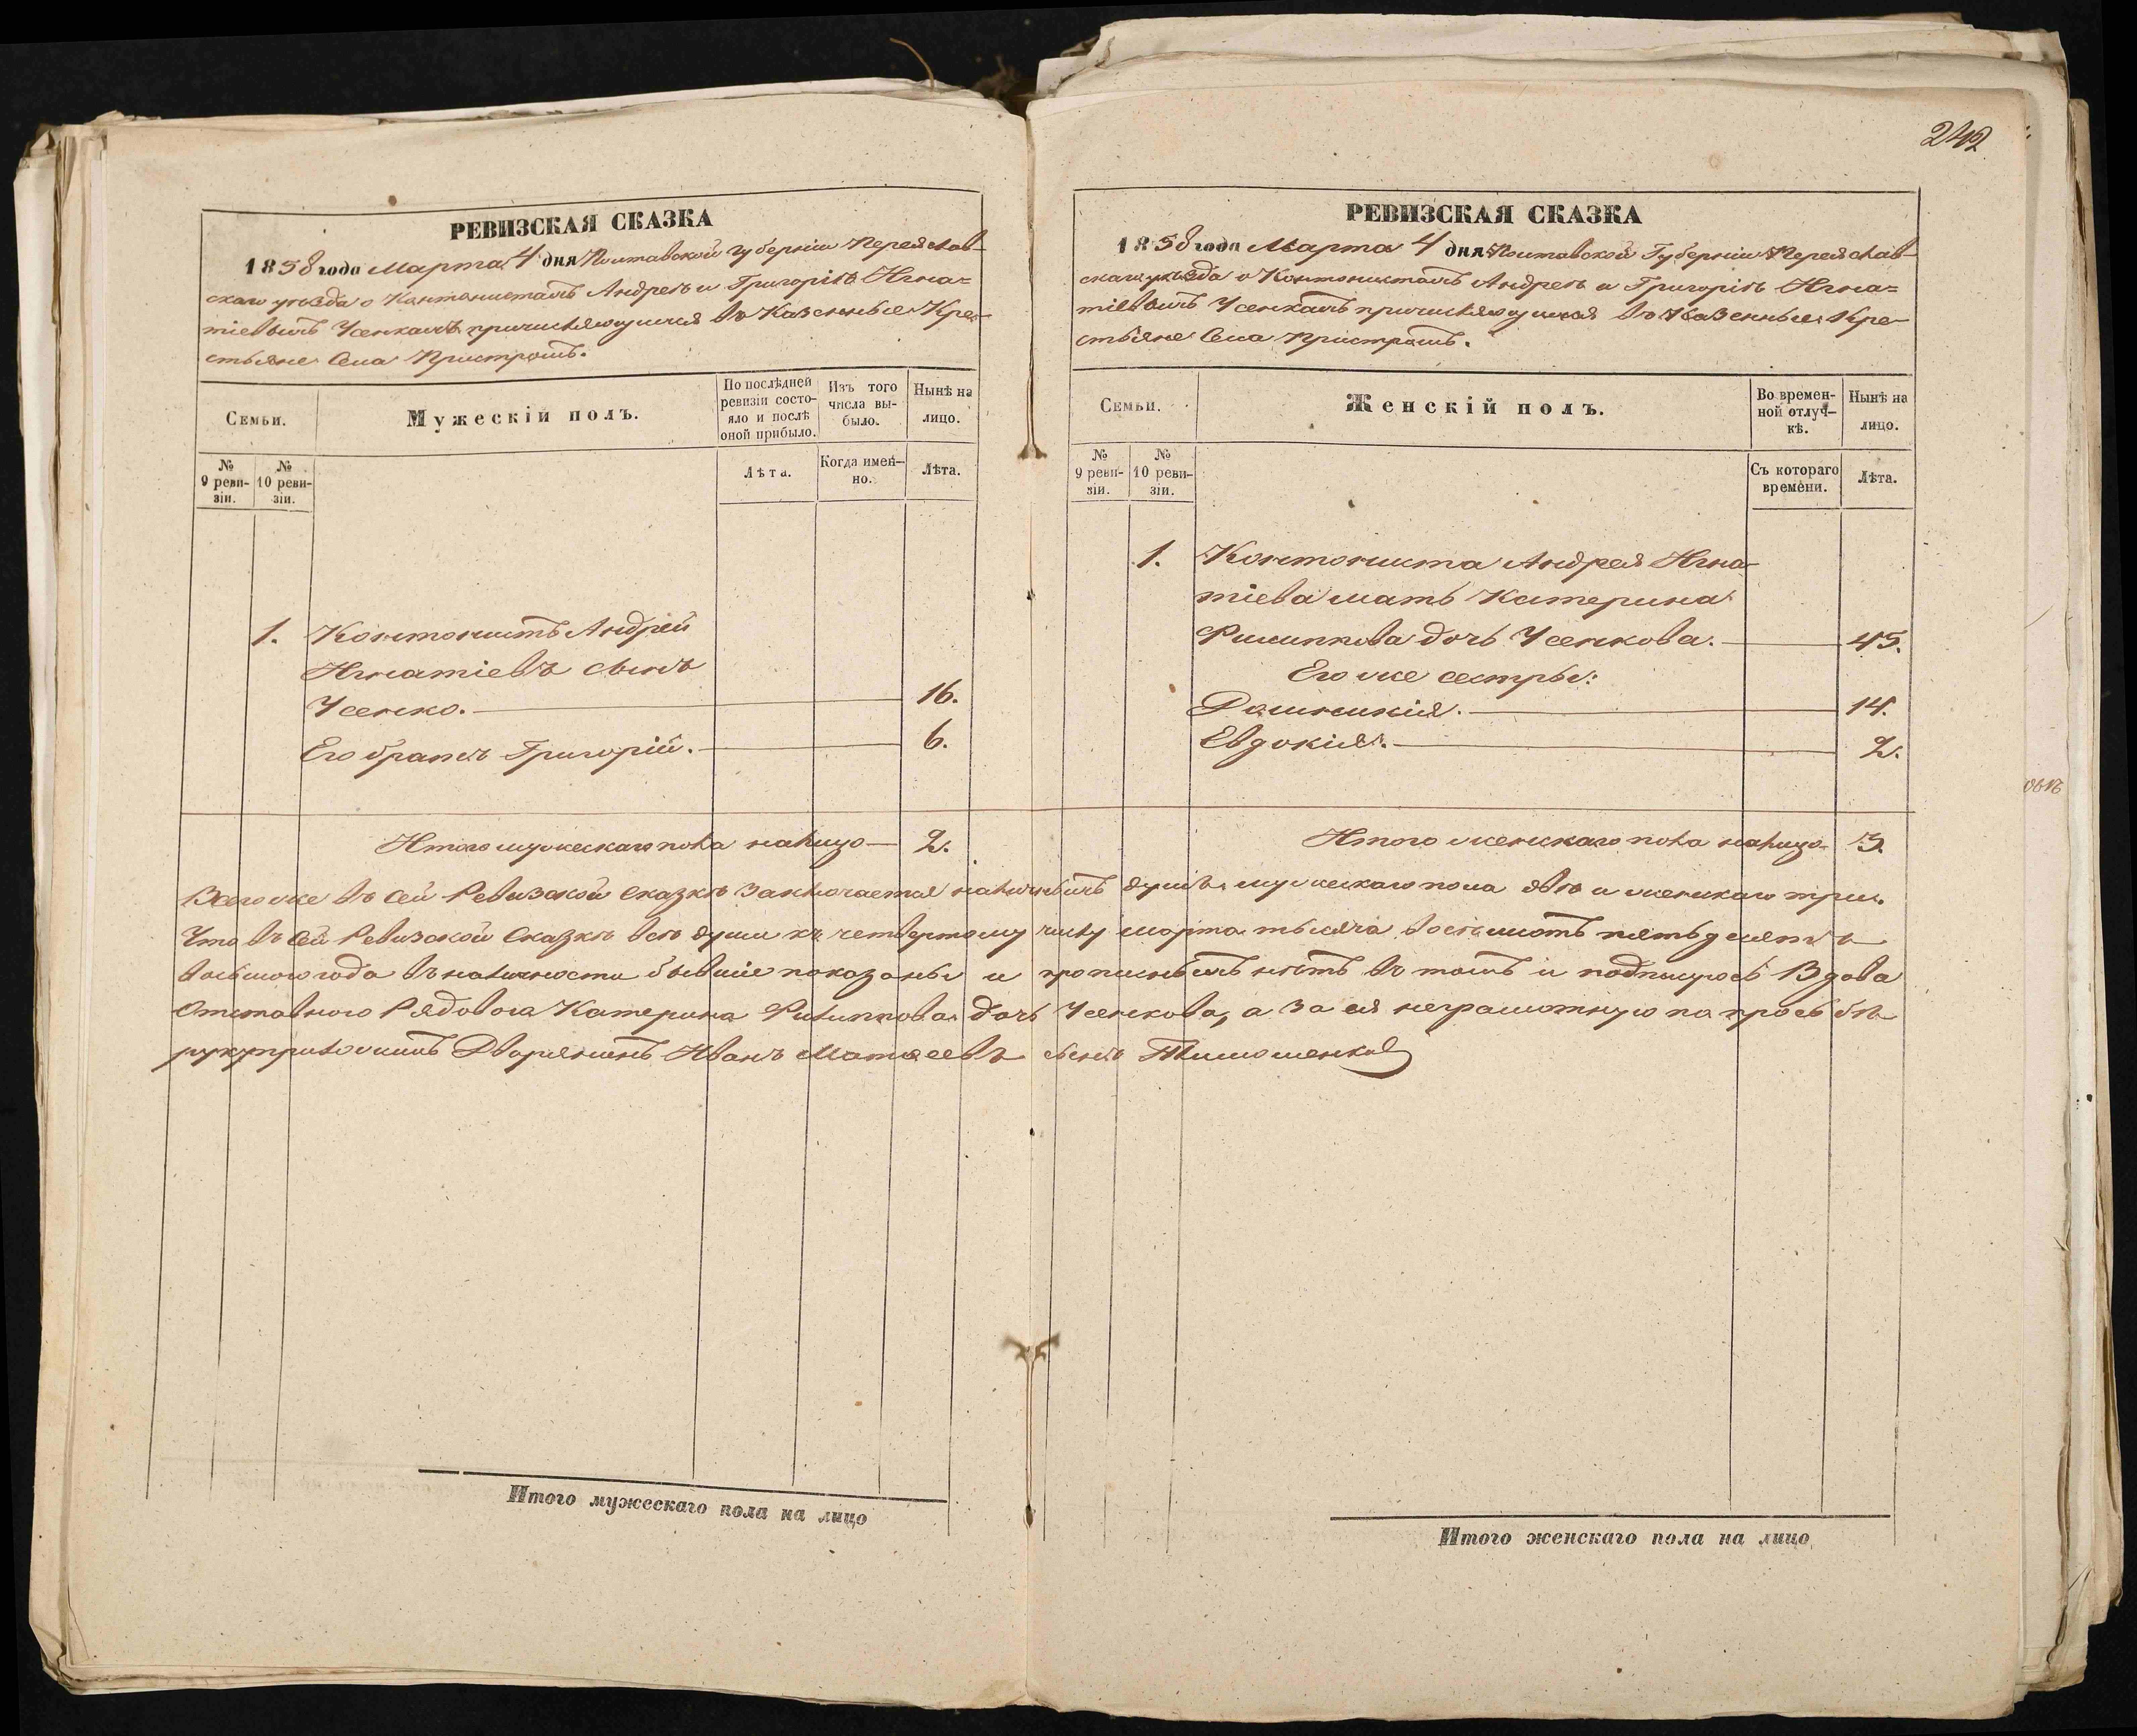 242
РЕВИЗСКАЯ СКАЗКА
1858 года Марта 4 дня Полтавской Губерніи Переяслав-
скаго уѣзда о Кантонистахъ Андреѣ и Григоріѣ Игна=
тіевыхъ Усенкахъ причисляющихся въ Казенные Кре-
стьяне Села Пристромъ.
Семьи.
Мужескій полъ.
По послѣдней
ревизіи состо-
яло и послѣ
оной прибыло.
Изъ того
числа вы-
было.
Нынѣ на
лицо.
№
9 реви-
зіи.
№
10 реви-
зіи.
Лѣта.
Когда имен-
но.
Лѣта.
1. Контонистъ Андрей
Игнатіевъ сынъ
Усенко. 16.
Его братъ Григорій. 6.
Итого мужескаго пола налицо 2.
РЕВИЗСКАЯ СКАЗКА
1858 года Марта 4 дня Полтавской Губерніи Переяслав-
скаго уѣзда о Контонистахъ Андреѣ и Григоріѣ Игна=
тіевыхъ Усенкахъ причисляющихся въ Казенные Кре-
стьяне Села Пристромъ.
Семьи.
Женскій полъ.
Во времен-
ной отлуч-
кѣ.
Нынѣ на
лицо.
№
9 реви-
зіи.
№
10 реви-
зіи.
Съ котораго
времени.
Лѣта.
1. Контониста Андрея Игна-
тіева мать Катерина
Филиппова дочь Усенкова. 45.
Его же сестры:
Домникія. 14.
Евдокія. 2.
Итого женскаго пола налицо 3.
Всего же въ сей Ревизской Сказкѣ заключается наличныхъ душъ мужескаго пола двѣ и женскаго три.
Что въ сей Ревизской Сказкѣ всѣ души къ четвертому числу марта тысяча восемьсотъ пятьдесятъ
восьмого года въ наличности бывшіе показаны и прописныхъ нѣтъ въ томъ и подписуюсь Вдова
Отставного Рядовога Катерина Филиппова дочь Усенкова, а за ея неграмотную по просьбѣ
руку приложилъ Дворянинъ Иванъ Матвеевъ сынъ Тимошенко
Итого мужескаго пола на лицо
Итого женскаго пола на лицо